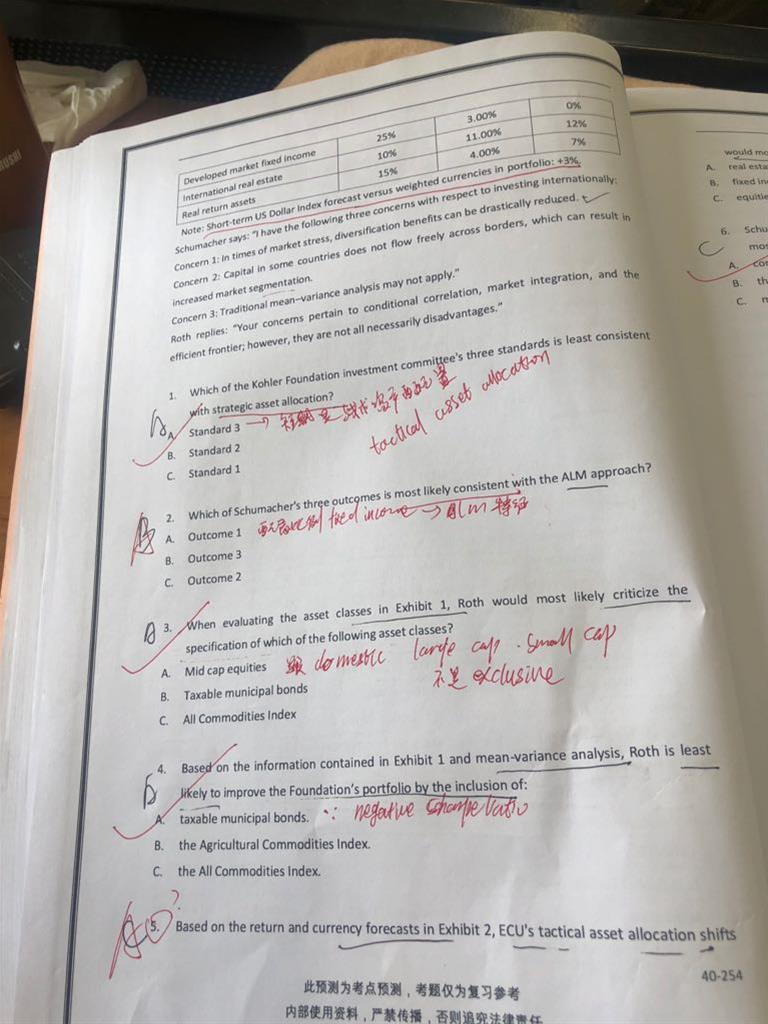 Developed market fixed income 25% 3.00% 0%
International real estate 10% 11.00% 12%
Real return assets 15% 4.00% 7%
Note: Short-term US Dollar Index forecast versus weighted currencies in portfolio: +3%.
Schumacher says: "I have the following three concerns with respect to investing internationally:
Concern 1: In times of market stress, diversification benefits can be drastically reduced.
Concern 2: Capital in some countries does not flow freely across borders, which can result in
increased market segmentation.
Concern 3: Traditional mean–variance analysis may not apply."
Roth replies: "Your concerns pertain to conditional correlation, market integration, and the
efficient frontier; however, they are not all necessarily disadvantages."
1. Which of the Kohler Foundation investment committee's three standards is least consistent
with strategic asset allocation?
A. Standard 3 → 战术资产配置
tactical asset allocation
B. Standard 2
C. Standard 1
2. Which of Schumacher's three outcomes is most likely consistent with the ALM approach?
A. Outcome 1 fixed income → ALM 特征
B. Outcome 3
C. Outcome 2
3. When evaluating the asset classes in Exhibit 1, Roth would most likely criticize the
specification of which of the following asset classes?
A. Mid cap equities domestic large cap . small cap
不是 exclusive
B. Taxable municipal bonds
C. All Commodities Index
4. Based on the information contained in Exhibit 1 and mean-variance analysis, Roth is least
likely to improve the Foundation's portfolio by the inclusion of:
A. taxable municipal bonds. ∵ negative sharpe ratio
B. the Agricultural Commodities Index.
C. the All Commodities Index.
5. Based on the return and currency forecasts in Exhibit 2, ECU's tactical asset allocation shifts
40-254
此预测为考点预测，考题仅为复习参考
内部使用资料，严禁传播，否则追究法律责任
would mo
A. real esta
B. fixed in
C. equitie
6. Schu
mos
C
A. cor
B. th
C. n